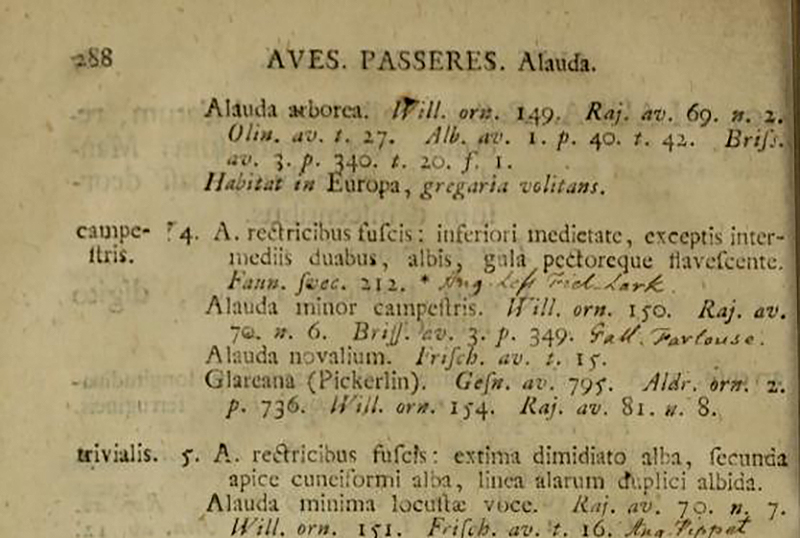 288 AVES. PASSERES. Alauda.
Alauda arborea. Will. orn. 149. Raj. av. 69. n. 2.
Olin. av. t. 27. Alb. av. 1. p. 40. t. 42. Briſſ.
av. 3. p. 340. t. 20. f. 1.
Habitat in Europa, gregaria volitans.
campe- ? 4. A. rectricibus fuſcis: inferiori medietate, exceptis inter-
ſtris. mediis duabus, albis, gula pectoreque flaveſcente.
Faun. ſvec. 212. * Ang. Leſſ Field-Lark.
Alauda minor campeſtris. Will. orn. 150. Raj. av.
70. n. 6. Briſſ. av. 3. p. 349. Gall. Farlouse.
Alauda novalium. Friſch. av. t. 15.
Glareana (Pickerlin). Geſn. av. 795. Aldr. orn. 2.
p. 736. Will. orn. 154. Raj. av. 81. n. 8.
trivialis. 5. A. rectricibus fuſcis: extima dimidiato alba, ſecunda
apice cuneiformi alba, linea alarum duplici albida.
Alauda minima locuſtæ voce. Raj. av. 70. n. 7.
Will. orn. 151. Friſch. av. t. 16. Ang. Pippet